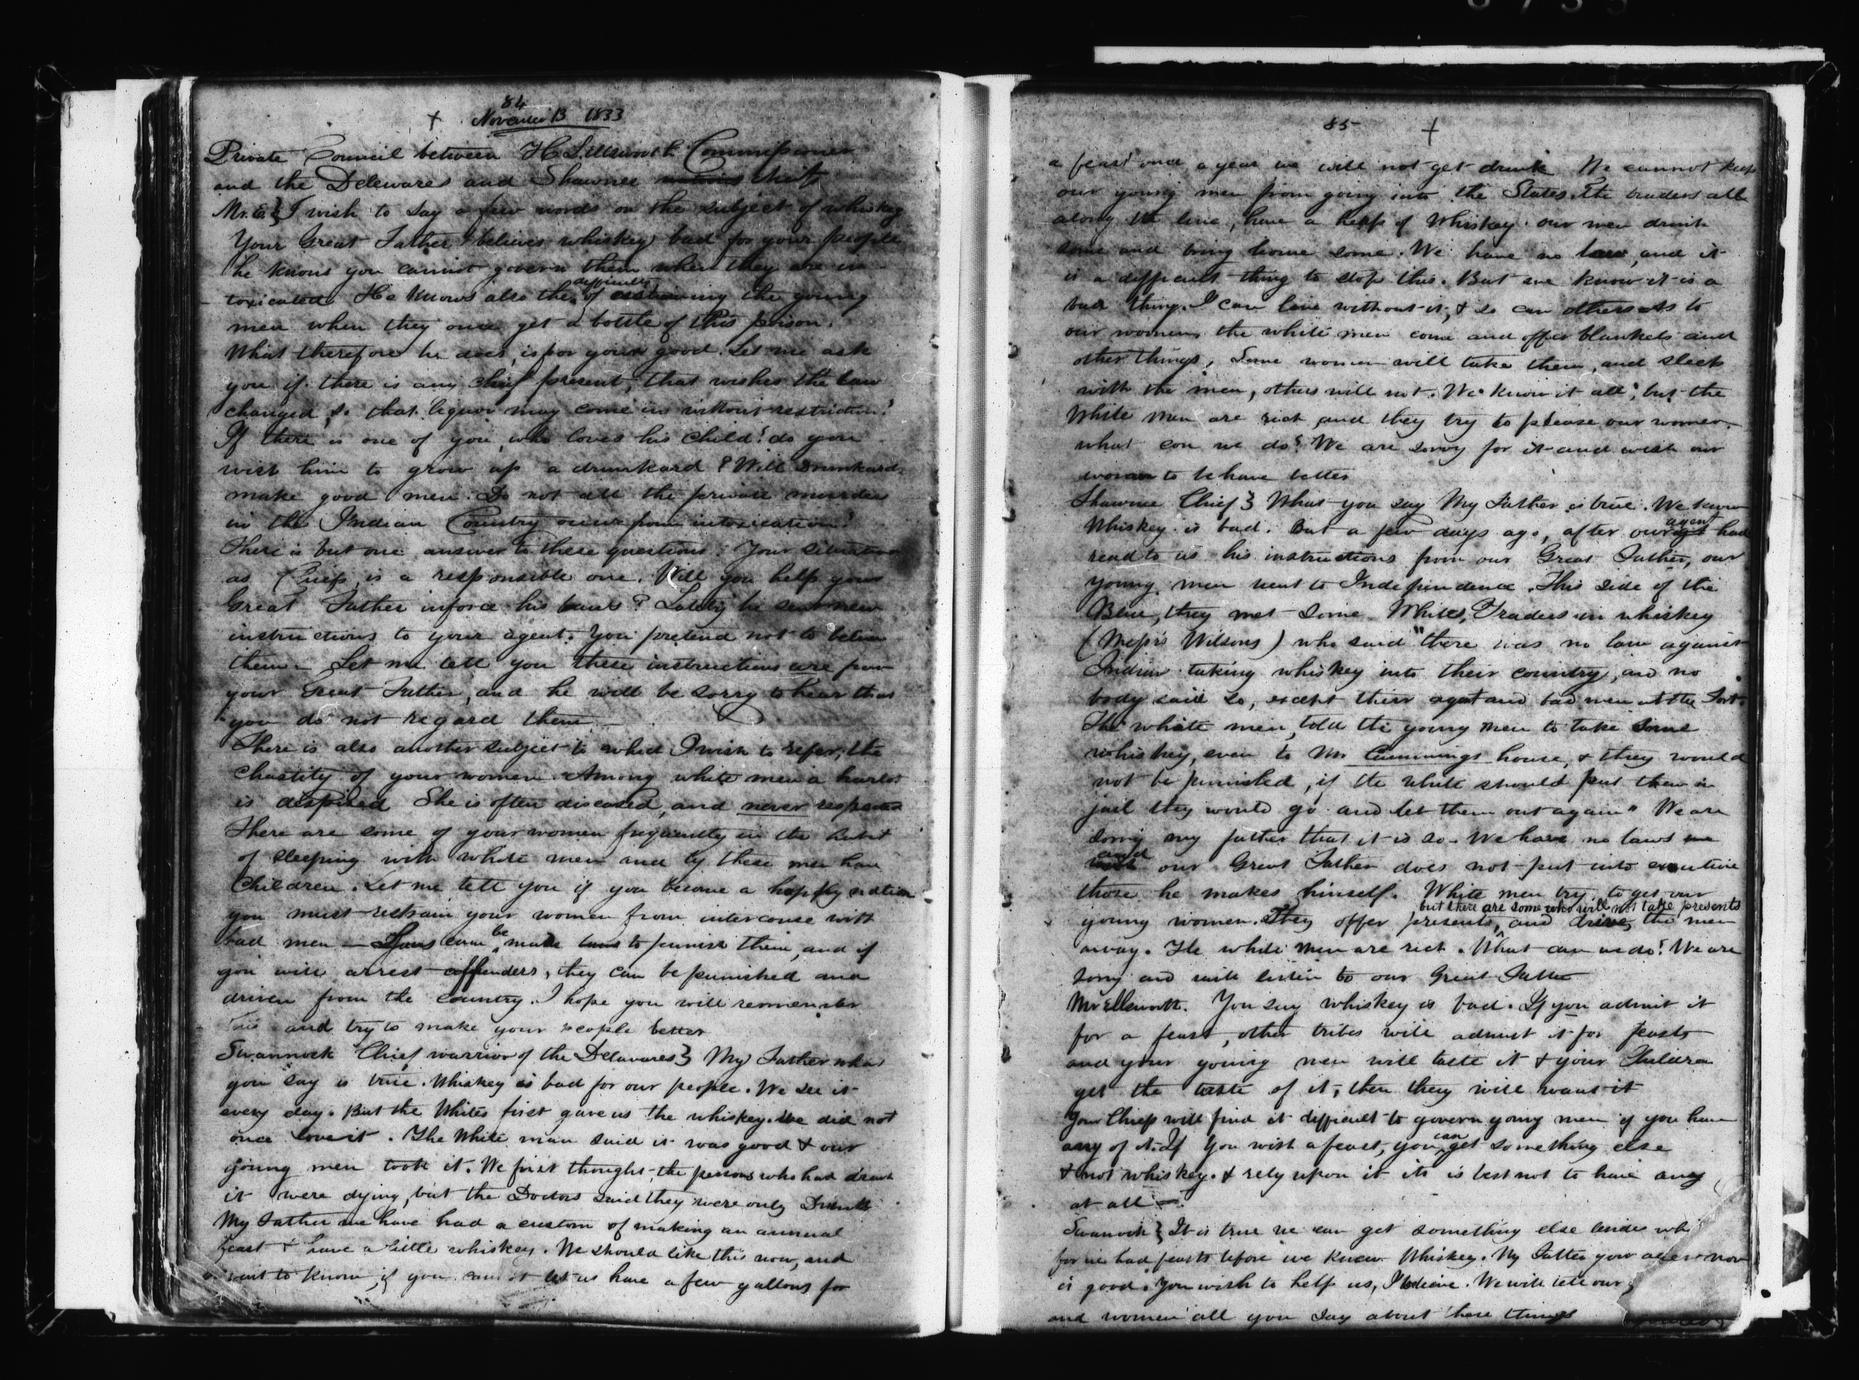 84
November 13 1833
Private Council between H L Ellsworth Commissioner
and the Delewares and Shawnee chiefs
Mr. E.} I wish to say a few words on the subject of whiskey
Your Great Father believes whiskey bad for your people
he knows you cannot govern them when they are in-
toxicated. He knows also the difficulty of restraining the young
men when they once get a bottle of this poison.
What therefore he does, is for your good. Let me ask
you if there is any chief present, that wishes the law
changed, so that liquor may come in without restriction?
If there is one of you, who loves his child? do you
wish him to grow up a drunkard? Will Drunkards
make good men. Do not all the private murders
in the Indian Country occur from intoxication?
There is but one answer to these questions. Your situation
as Chiefs is a responsible one. Will you help your
Great Father inforce his laws? Lately he sent new
instructions to your agent. You pretend not to believe
them. Let me tell you these instructions are from
your Great Father, and he will be sorry to hear that
you do not regard them
There is also another subject to which I wish to refer, the
Chastity of your women. Among white men a harlot
is despised. She is often diseased, and never respected
There are some of your women frequently in the habit
of sleeping with white men and by these men have
Children. Let me tell you if you become a happy nation
you must restrain your women from intercourse with
bad men – Laws can be made to punish them, and if
you will arrest offenders, they can be punished and
driven from the country. I hope you will remember
this and try to make your people better
Swannock Chief warrior of the Delawares} My Father what
you say is true. Whiskey is bad for our people. We see it
every day. But the Whites first gave us the whiskey. We did not
once love it. The White man said it was good & our
young men took it. We first thought the persons who had drank
it were dying, but the Doctors said they were only Drunk
My Father we have had a custom of making an annual
feast & have a little whiskey. We should like this now, and
want to know, if you must let us have a few gallons for
85
a feast once a year we will not get drunk. We cannot keep
our young men from going into the States. The traders all
along the line, have a heap of Whiskey. our men drink
some and bring home some. We have no law, and it
is a difficult thing to stop this. But we know it is a
bad thing. I can live without it, & so can others. As to
our women, the white men come and offer blankets and
other things, Some women will take them, and sleep
with the men, others will not. We know it all; but the
White men are rich and they try to please our women.
what can we do? We are sorry for it and wish our
women to behave better
Shawnee Chief} What you say My Father is true. We know
Whiskey is bad. But a few days ago, after our agent had
read to us his instructions from our Great Father, our
young men went to Independence. This side of the
Blue, they met some Whites, Traders in whiskey
(Messrs Wilsons) who said "there was no law against
Indians taking whiskey into their country, and no
body said so, except their agent and bad men at the Fort.
The white men, told the young men to take some
whiskey, even to Mr Cummings house, & they would
not be punished, if the white should put them in
jail they would go and let them out again" We are
sorry my father that it is so. We have no laws
and our Great Father does not put into execution
those he makes himself. White men try to get our
young women. They offer presents, but there are some who will not take presents and drive the men
away. The white men are rich. What can we do? We are
sorry and will listen to our Great Father
Mr Ellsworth. You say whiskey is bad. If you admit it
for a feast, other tribes will admit it for feasts
and your young men will taste it & your Children
get the taste of it, then they will want it
Your Chiefs will find it difficult to govern young men if you have
any of it. If You wish a feast, you can get something else
& not whiskey. & rely upon it its is best not to have any
at all –
Swannock} It is true we can get something else besides
for we had feasts before we knew Whiskey. My Father your advice now
is good. You wish to help us, I believe. We will tell our
and women all you say about these things